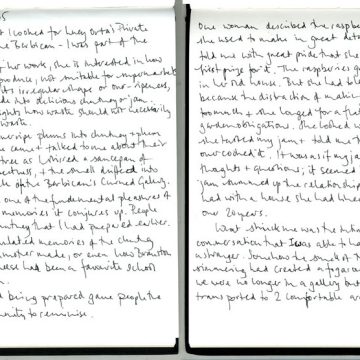 I cooked for Lucy Orta's Private
the Barbican - I was part of the
her work, she is interested in how
produce, not suitable for supermarkets
its irregular shape or over-ripeness,
made into delicious chutney or jam.
how waste should not necessarily
waste.
plums into chutney & plum
came & talked to me about their
tree as I stirred a saucepan of
& the smell drifted into
of the Barbican's Curved Gallery.
one of the fundamental pleasures of
memories it conjures up. People
chutney that I had prepared earlier.
memories of the chutney
mother made, or even how Branston
cheese had been a favourite school
being prepared gave people the
opportunity to reminisce.
One woman described the raspberry
she used to make in great detail
told me with great pride that she
first prize for it. The raspberries grew
in her old house. But she had to
because the distraction of making
too much & she longed for a
garden obligations. She looked
she tasted my jam & told me
overcooked it. It was as if my jam
thoughts & questions; it seemed
jam summed up the relationship
had with a house she had lived
over 20 years.
What struck me was the
conversation that I was able to have
a stranger. Somehow the smell of
simmering had created a
we were no longer in a gallery but
transported to 2 comfortable